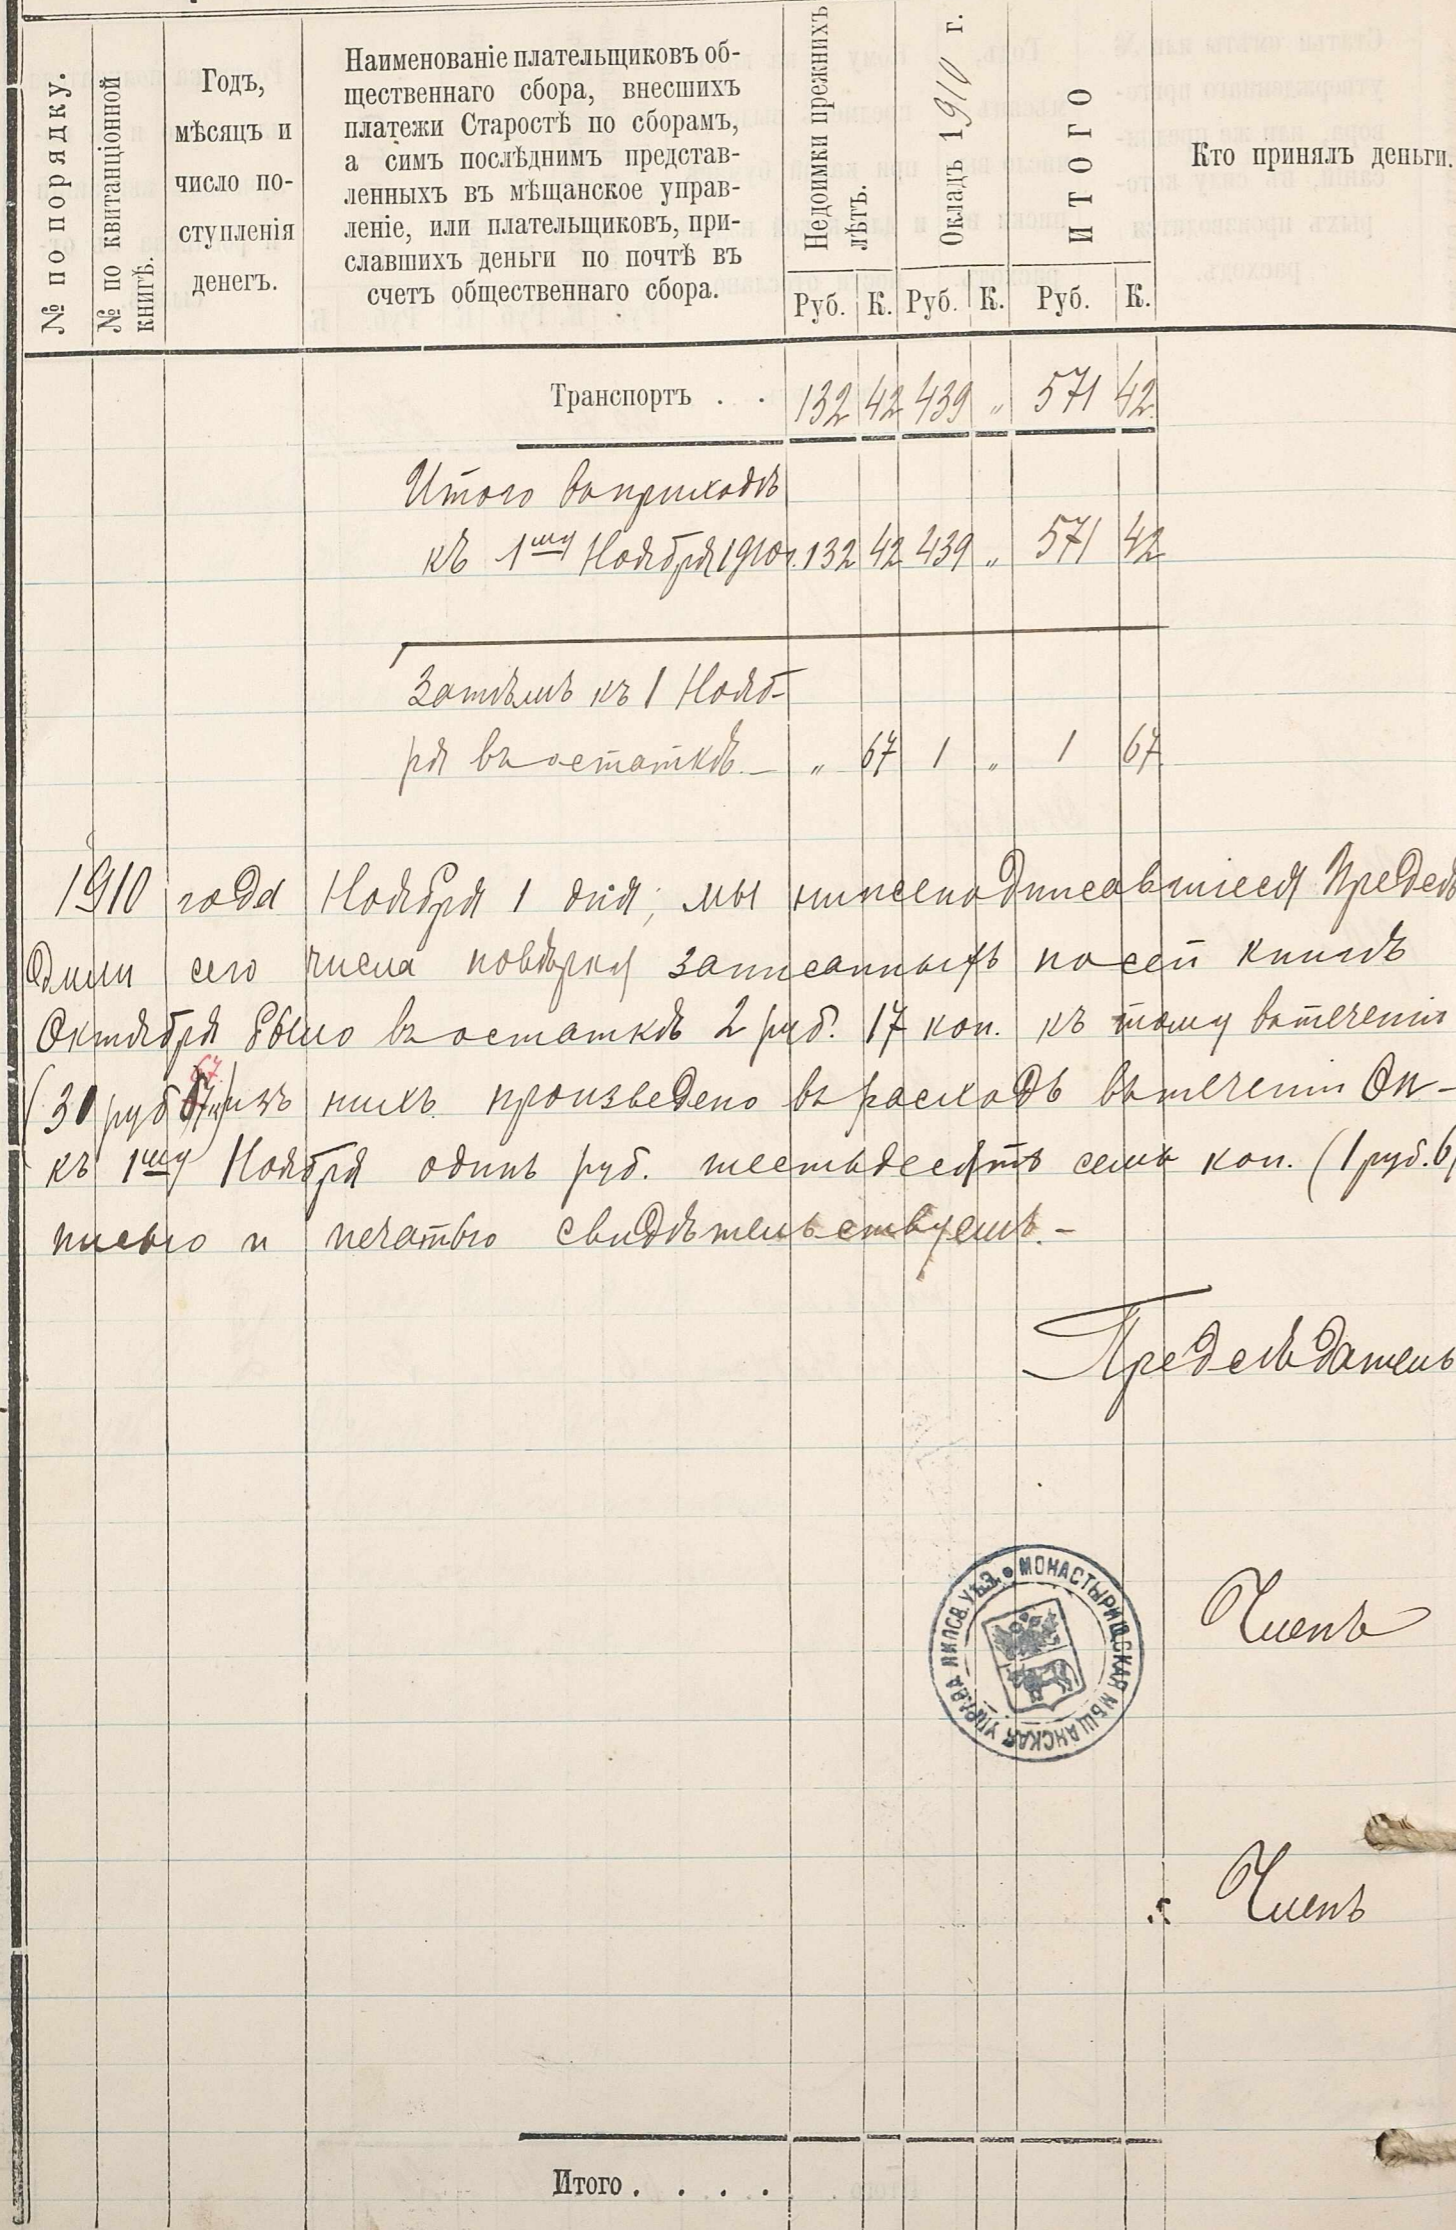 № по порядку.
№ по квитанціонной
книгѣ.
Годъ,
мѣсяцъ и
число по-
ступленія
денегъ.
Наименованіе плательщиковъ об-
щественнаго сбора, внесшихъ
платежи Старостѣ по сборамъ,
а симъ послѣднимъ представ-
ленныхъ въ мѣщанское управ-
леніе, или плательщиковъ, при-
славшихъ деньги по почтѣ въ
счетъ общественнаго сбора.
Недоимки прежнихъ
лѣтъ.
Окладъ 1910 г.
ИТОГО
Кто принялъ деньги.
Руб. К. Руб. К. Руб. К.
Транспортъ . . 132 42 439 „ 571 42
Итого въ приходѣ
къ 1му Ноября 1910 г. 132 42 439 „ 571 42
Затѣмъ къ 1 Нояб-
ря въ остаткѣ.— „ 67 1 „ 1 67
1910 года Ноября 1 дня, мы нижеподписавшіеся Предсѣ
дили сего числа повѣрку записанныхъ по сей книгѣ
Октября было въ остаткѣ 2 руб. 17 коп. къ тому въ теченіи
(30 руб 67 изъ нихъ произведено въ расходъ въ теченіи Ок-
къ 1му Ноября одинъ руб. шестьдесятъ семь коп. (1 руб. 6
писью и печатью свидѣтельствуемъ.—
Предсѣдатель
МОНАСТЫРИЩСКАЯ МѢЩАНСКАЯ УПРАВА ЛИПОВ. УѢЗ.
Членъ
Членъ
Итого . . . .